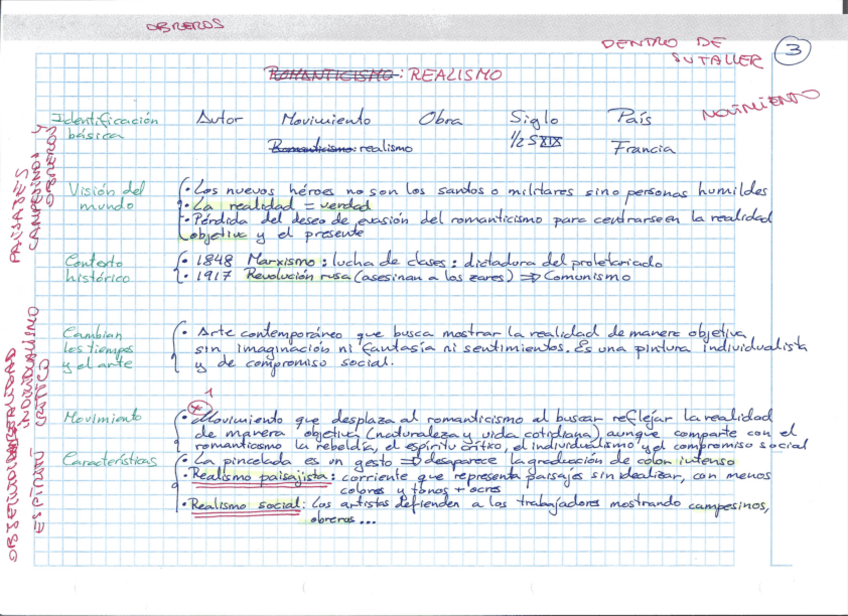 OBREROS
DENTRO DE
SU TALLER
3
ROMANTICISMO: REALISMO
MOVIMIENTO
Identificación básica
Autor Movimiento Obra Siglo País
Romanticismo: realismo 1/2 S XIX Francia
PAISAJES
CAMPESINOS Y
OBREROS
Visión del mundo
• Los nuevos héroes no son los santos o militares sino personas humildes
• La realidad = verdad
• Pérdida del deseo de evasión del romanticismo para centrarse en la realidad
objetiva y el presente
Contexto histórico
• 1848 Marxismo: lucha de clases: dictadura del proletariado
• 1917 Revolución rusa (asesinan a los zares) ⇒ Comunismo
Cambian los tiempos y el arte
• Arte contemporáneo que busca mostrar la realidad de manera objetiva
sin imaginación ni fantasía ni sentimientos. Es una pintura individualista
y de compromiso social.
1
Movimiento
* • Movimiento que desplaza al romanticismo al buscar reflejar la realidad
de manera objetiva (naturaleza y vida cotidiana) aunque comparte con el
romanticismo la rebeldía, el espíritu crítico, el individualismo y el compromiso social
Características
• La pincelada es un gesto ⇒ desaparece la graduación de color intenso
• Realismo paisajista: corriente que representa paisajes sin idealizar, con menos
colores y tonos + ocres
• Realismo social: Los artistas defienden a los trabajadores mostrando campesinos,
obreros...
REALIDAD
INDIVIDUALISMO
ESPÍRITU CRÍTICO